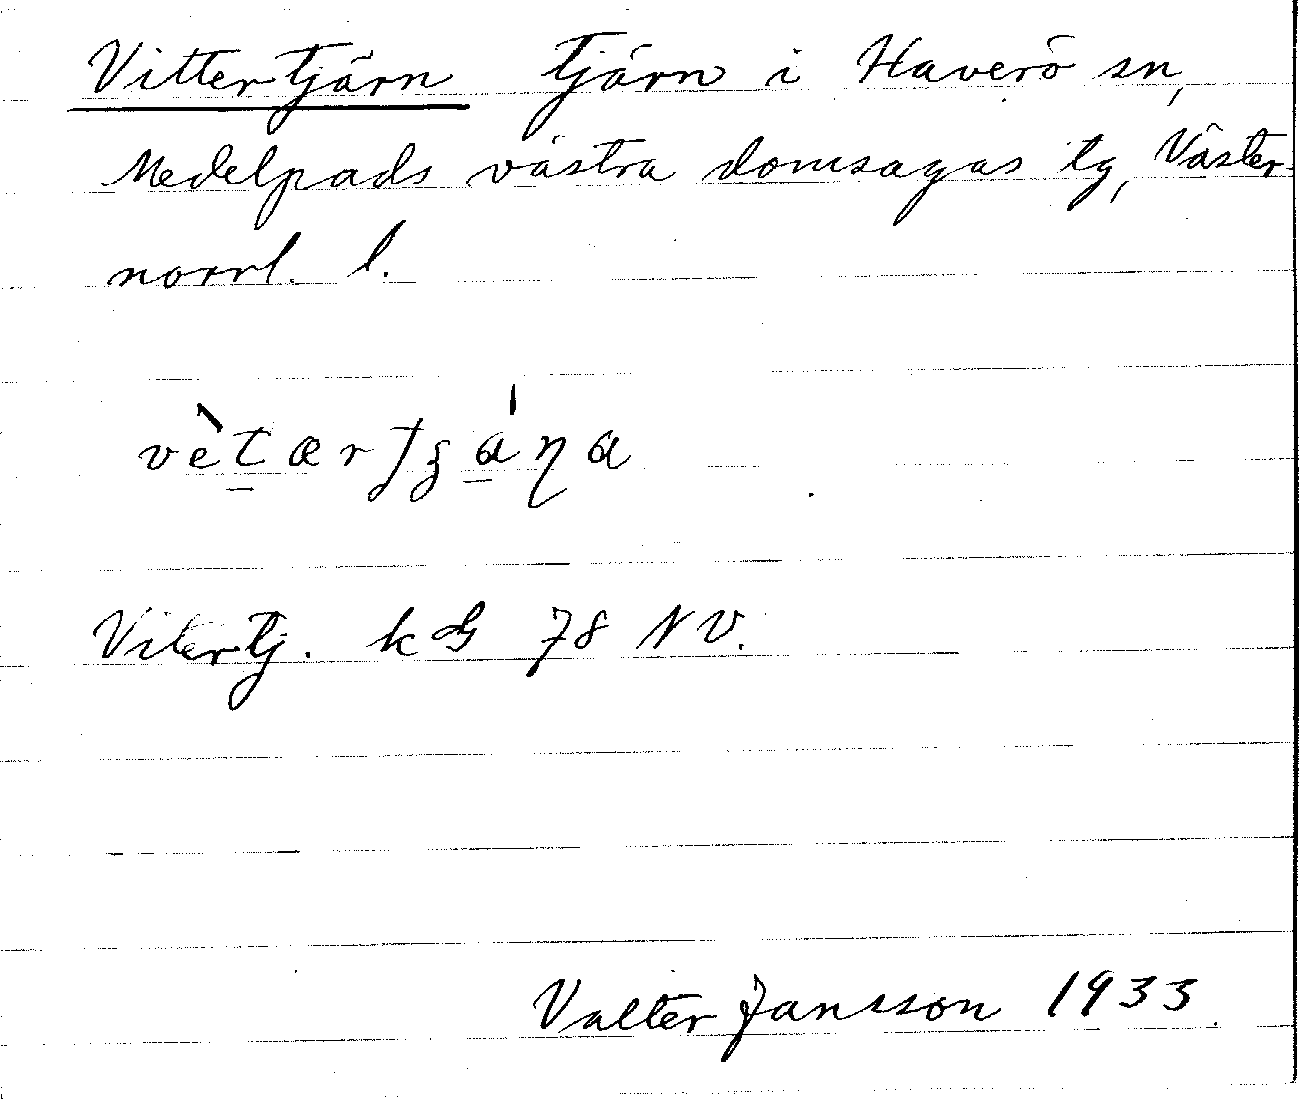 Vittertjärn Tjärn i Haverö sn,
Medelpads västra domsagas tg, Väster-
norrl. l.
vètærtʒánа
Vitertj. kG 78 NV.
Valter Jansson 1933